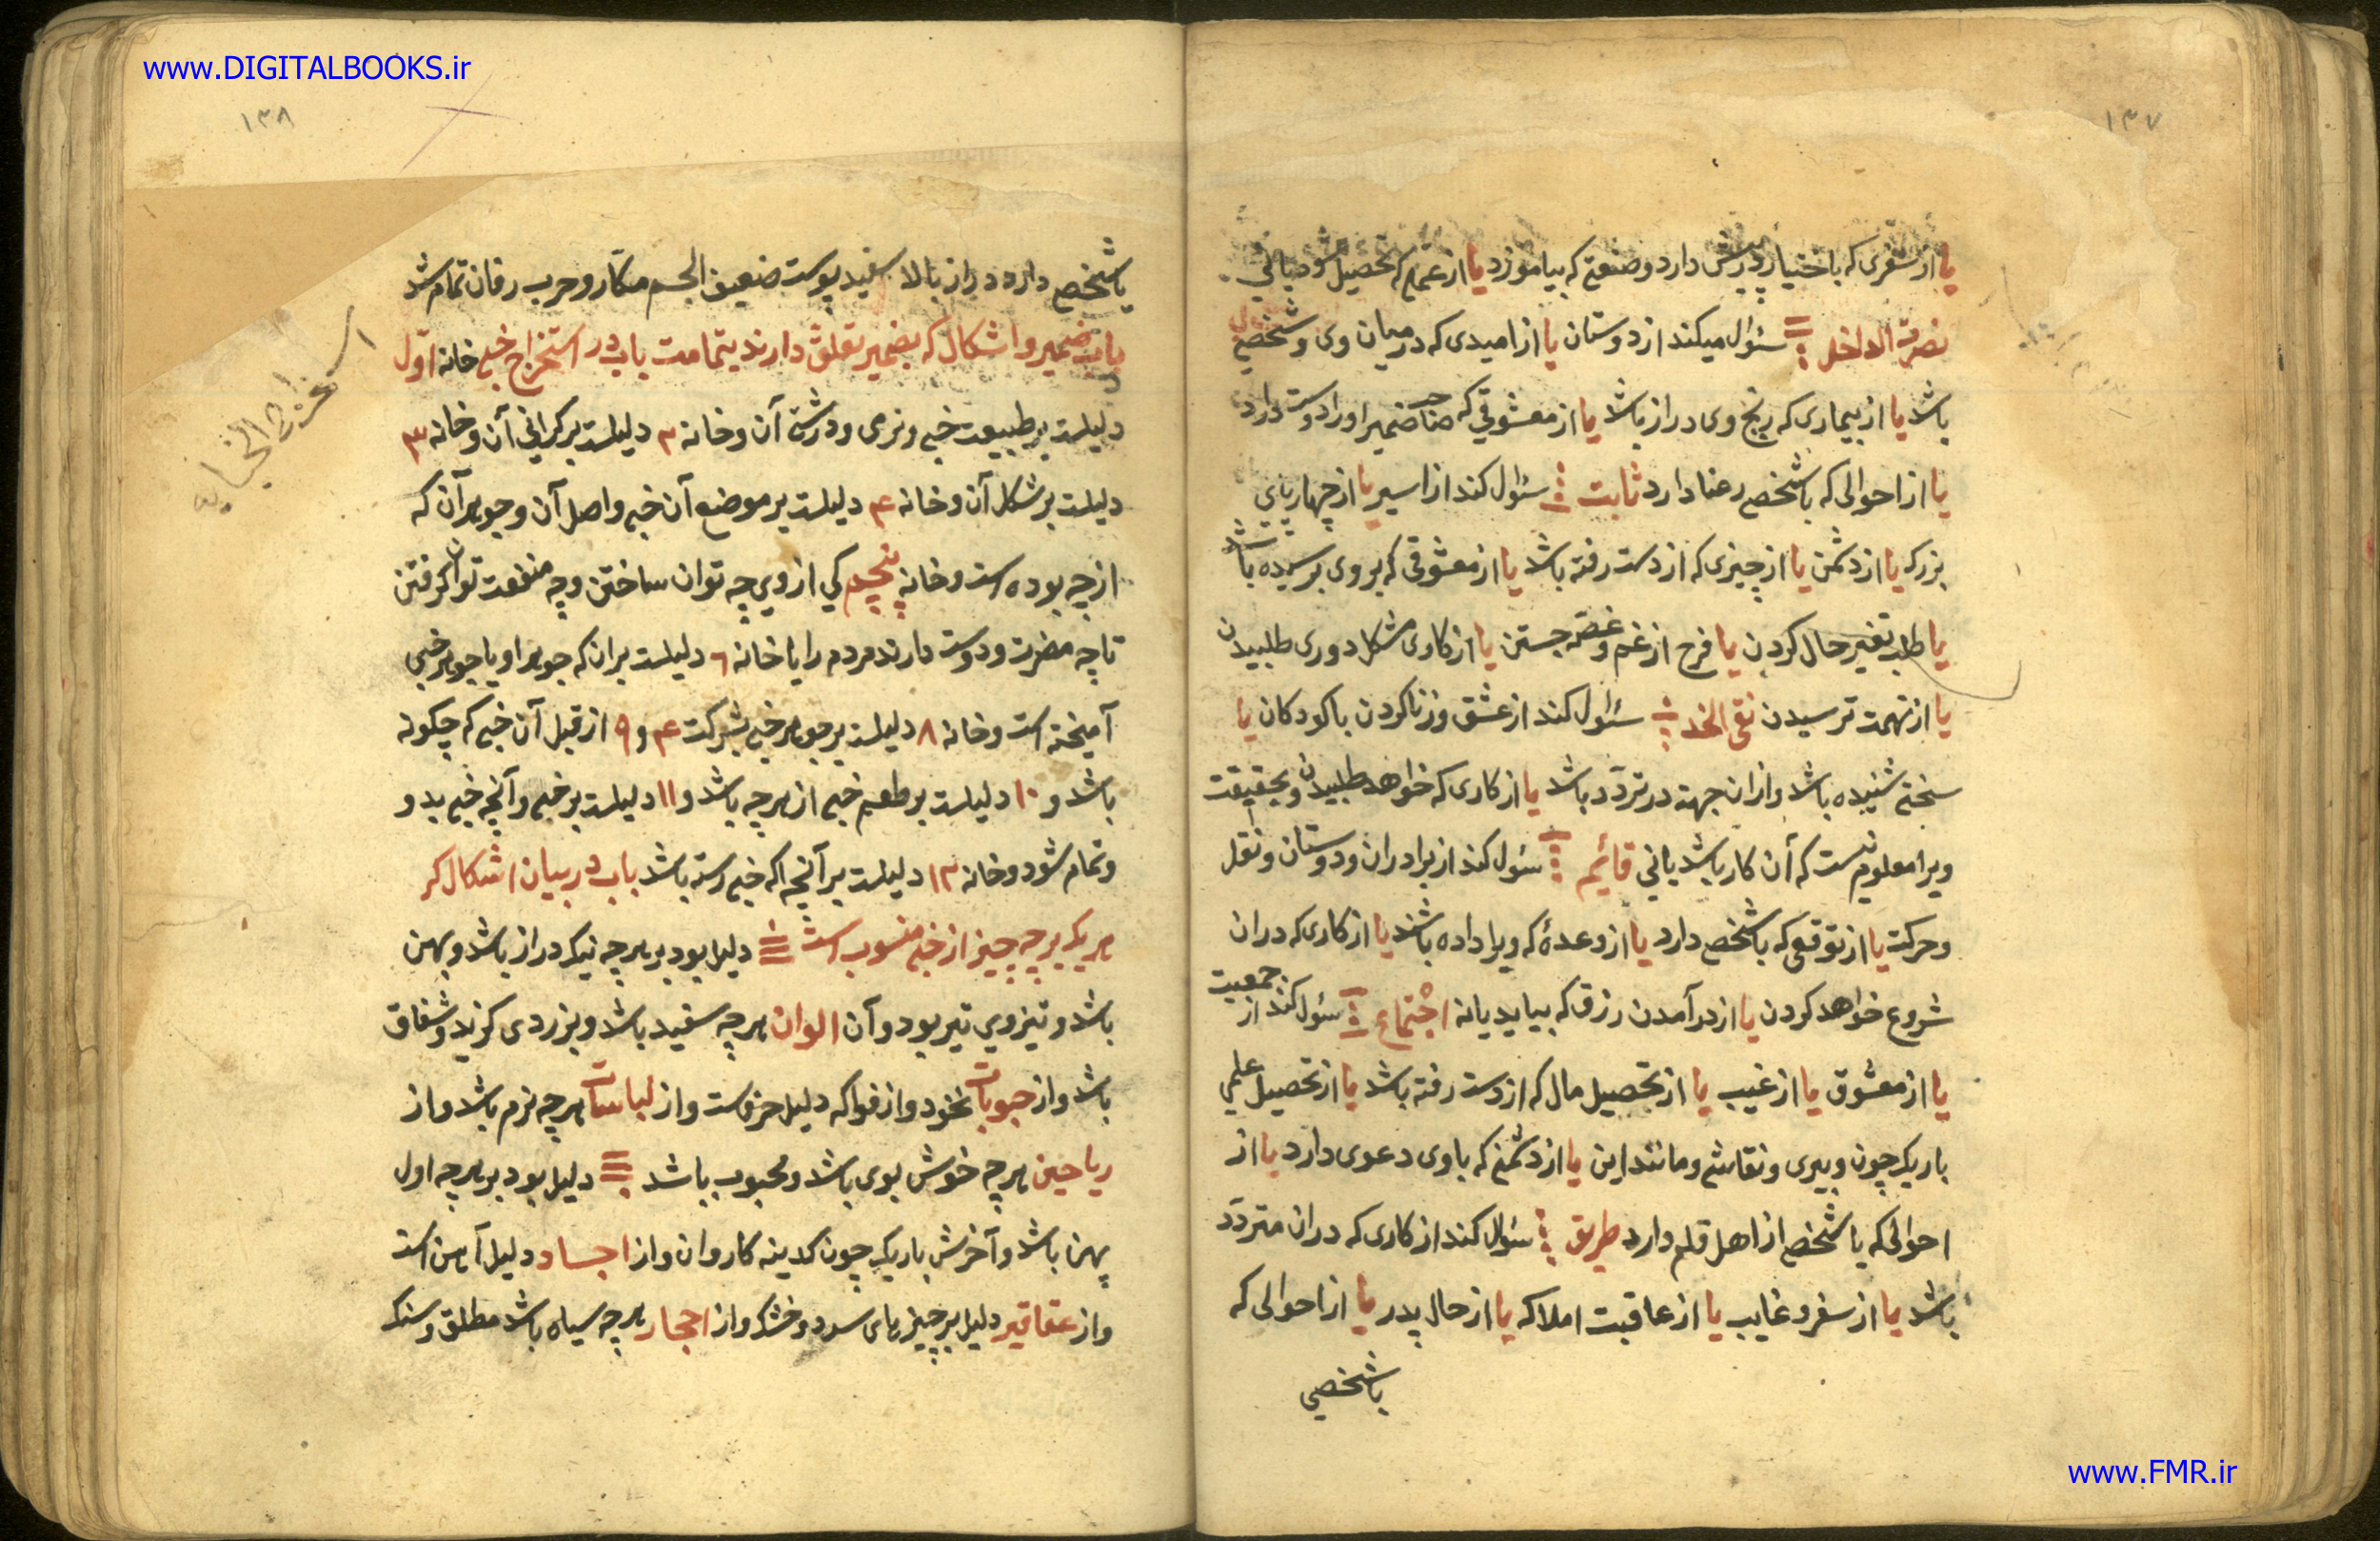 www.DIGITALBOOKS.ir
۱۳۷
یا از سفری که باختیار درپیش دارد و صنعتی که بیاموزد یا از علمی که تحصیل
نصرة الداخل سئوال میکند از دوستان یا از امیدی که درمیان وی و شخصی
باشد یا از بیماری که رنج وی دراز باشد یا از معشوقی که صاحب ضمیر او را دوست دارد
یا از احوالی که باشخص رعنا دارد ثابت سئوال کند از اسیر یا از چهارپای
بزرک یا از دشمن یا از چیزی که از دست رفته باشد یا از معشوقی که بروی ترسیده باشد
یا طلب تغیر حال کردن یا فرح از غم و غصه جستن یا از کاری مشکل دوری طلبیدن
یا از تهمت ترسیدن نقی الخد سئوال کند از عشق و زنا کردن با کودکان یا
سخنی شنیده باشد و ازان جهة در تردّد باشد یا از کاری که خواهد طلبیدن و بحقیقت
ویرا معلوم نیست که آن کار باشد یانی قائیم سئول کند از برادران و دوستان و نقل
وحرکت یا از توقعی که باشخص دارد یا از وعدهٔ که ویرا داده باشند یا از کاری که دران
شروع خواهد کردن یا از درآمدن رزق که بیاید یانه اجتماع سئول کند از جمعیت
یا از معشوق یا از غیب یا از تحصیل مال که از دست رفته باشد یا از تحصیل علمی
باریک چون دبیری و نقاشی و مانند این یا از دشمنی که باوی دعوی دارد یا از
احوالی که باشخص از اهل قلم دارد طریق سئوال کند از کاری که دران متردّد
باشد یا از سفر و غایب یا از عاقبت املاک یا از حال پدر یا از احوالی که
باشخصی
۱۳۸
باشخص دارد دراز بالا سفید پوست ضعیف الجسم مکّار و چرب زفان تمام شد
باب ضمیر و اشکال که بضمیر تعلق دارند بتمامت باب در استخراج خبی خانه اوّل
دلیلست بر طبیعت خبی و نرمی و درشتی آن و خانه ۲ دلیلست بر کرانی آن و خانه ۳
دلیلست بر شکل آن و خانه ۴ دلیلست بر موضع آن خبی و اصل آن و جوهر آن که
از چه بوده است و خانه پنجم کی از وی چه توان ساختن و چه منفعت توان کرفتن
تا چه مضرت و دوست دارند مردم را یا خانه ٦ دلیلست بران که جوهر او با جوهر خبی
آمیخته است و خانه ۸ دلیلست بر جوهر خبی بشرکت ۴ و ۹ از قبل آن خبی که چکونه
باشد و ۱۰ دلیلست بر طعم خبی از هرچه باشد و ۱۱ دلیلست بر خبی و آنچه خبی بدو
وتمام شود و خانه ۱۲ دلیلست بر آنچه که خبی رسته باشد باب در بیان اشکال کر
هریک بر چه چیز از خبی منسوب است دلیل بود بر هرچه نیک دراز باشد و بهن
باشد و تیزوی تیر بود و آن الوان هرچه سفید باشد و بزردی کراید و شفاق
باشد و از حبوبات نخود و از فواکه دلیل خرفست و از لباسات هرچه نرم باشد و از
ریاحین هرچه خوش بوی باشد و محبوب باشد دلیل بود بر هرچه اول
پهن باشد و آخرش باریک چون کدینه کاروان و از اجساد دلیل آهن است
و از عقاقیر دلیل بر چیزهای سرد و خشک و از احجار هرچه سیاه باشد مطلق و سنک
استخراج الخبایه
www.FMR.ir